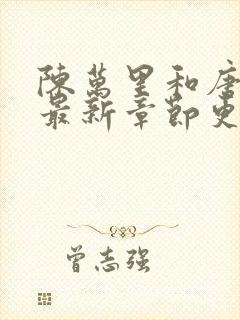 陳萬里和唐
最新章節更
曾志强